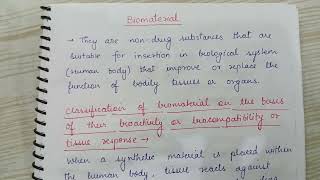 Biomaterial
→ They are non-drug substances that are
suitable for insertion in biological system
(Human body) that improve or replace the
function of bodily tissues or organs.
Classification of biomaterial on the basis
of their bioactivity or biocompatibility or
tissue response →
When a synthetic material is placed within
the human body, tissue reacts against